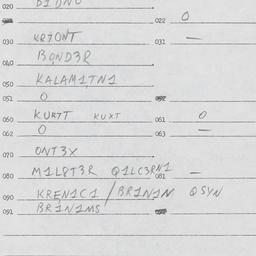 020
022 0
030 KR7ONT 031 —
040 BOND3R
050 KALAM1TN1
051 0 052
060 KUR7T KUXT 061 0
062 0 063 —
070 ONT3X
080 M1L8T3R Q1LC3RN1 081 —
090 KREN1C1 / BR1N1N QSYN
091 BR1N1MS